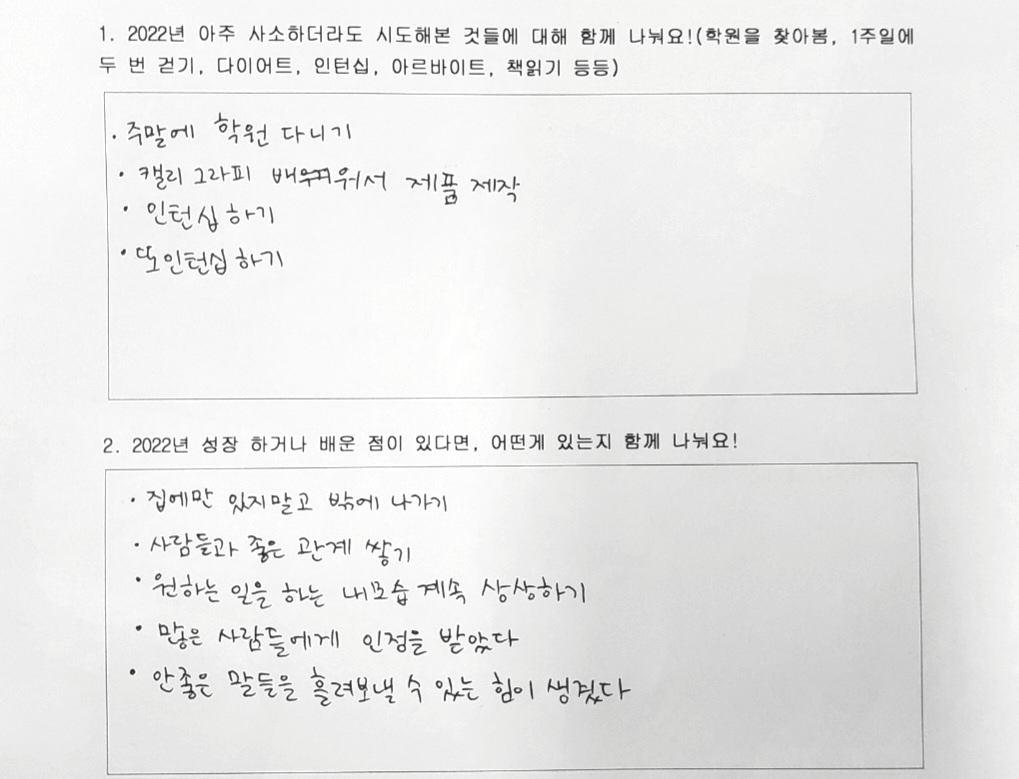 1. 2022년 아주 사소하더라도 시도해본 것들에 대해 함께 나눠요!(학원을 찾아봄, 1주일에
두 번 걷기, 다이어트, 인턴십, 아르바이트, 책읽기 등등)
· 주말에 학원 다니기
· 캘리그라피 배워서 제품 제작
· 인턴십 하기
· 또 인턴십 하기
2. 2022년 성장 하거나 배운 점이 있다면, 어떤게 있는지 함께 나눠요!
· 집에만 있지말고 밖에 나가기
· 사람들과 좋은 관계 쌓기
· 원하는 일을 하는 내모습 계속 상상하기
· 많은 사람들에게 인정을 받았다
· 안좋은 말들을 흘려보낼 수 있는 힘이 생겼다